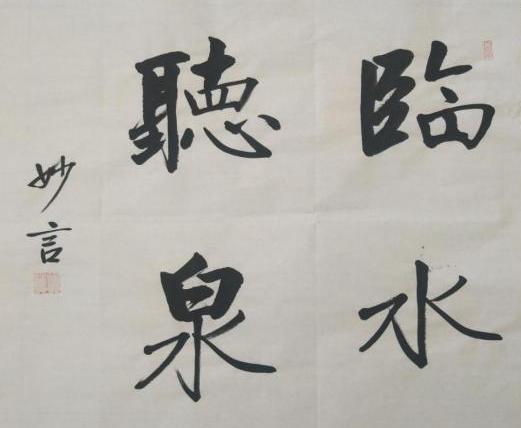 臨水
聽泉
妙言